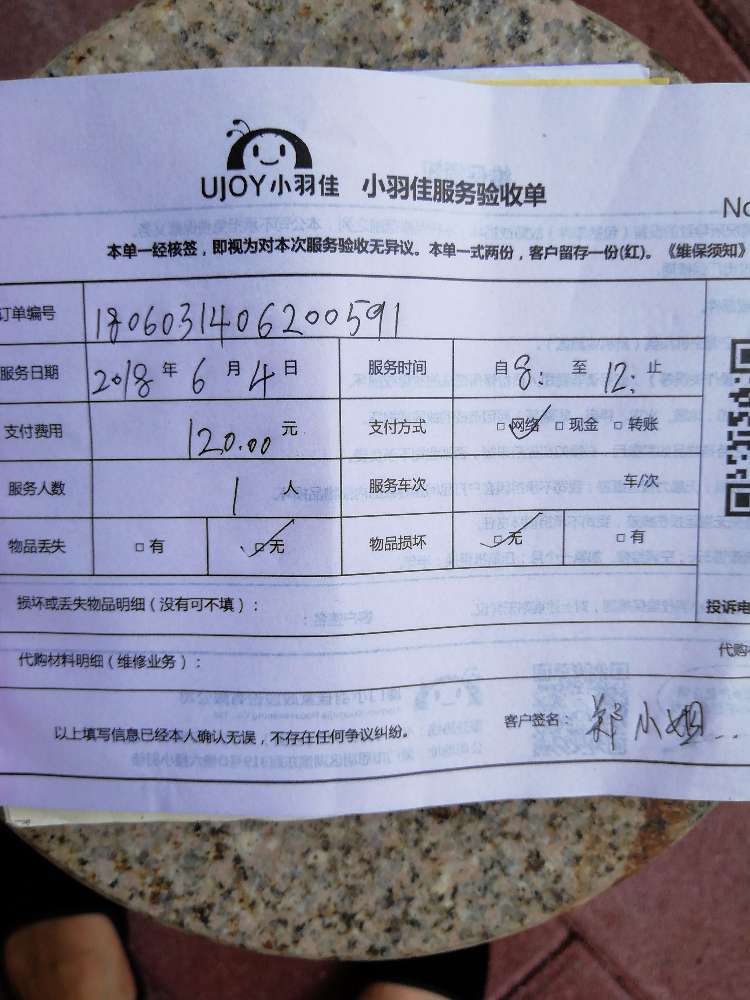 UJOY小羽佳 小羽佳服务验收单
No
本单一经核签，即视为对本次服务验收无异议。本单一式两份，客户留存一份(红)。《维保须知》
订单编号 1806031406200591
服务日期 2018 年 6 月 4 日 服务时间 自 8: 至 12: 止
支付费用 120.00 元 支付方式 □网络 □现金 □转账
服务人数 1 人 服务车次 车/次
物品丢失 □有 □无 物品损坏 □无 □有
损坏或丢失物品明细（没有可不填）： 投诉电
代购材料明细（维修业务）： 代购
以上填写信息已经本人确认无误，不存在任何争议纠纷。 客户签名： 郑小姐